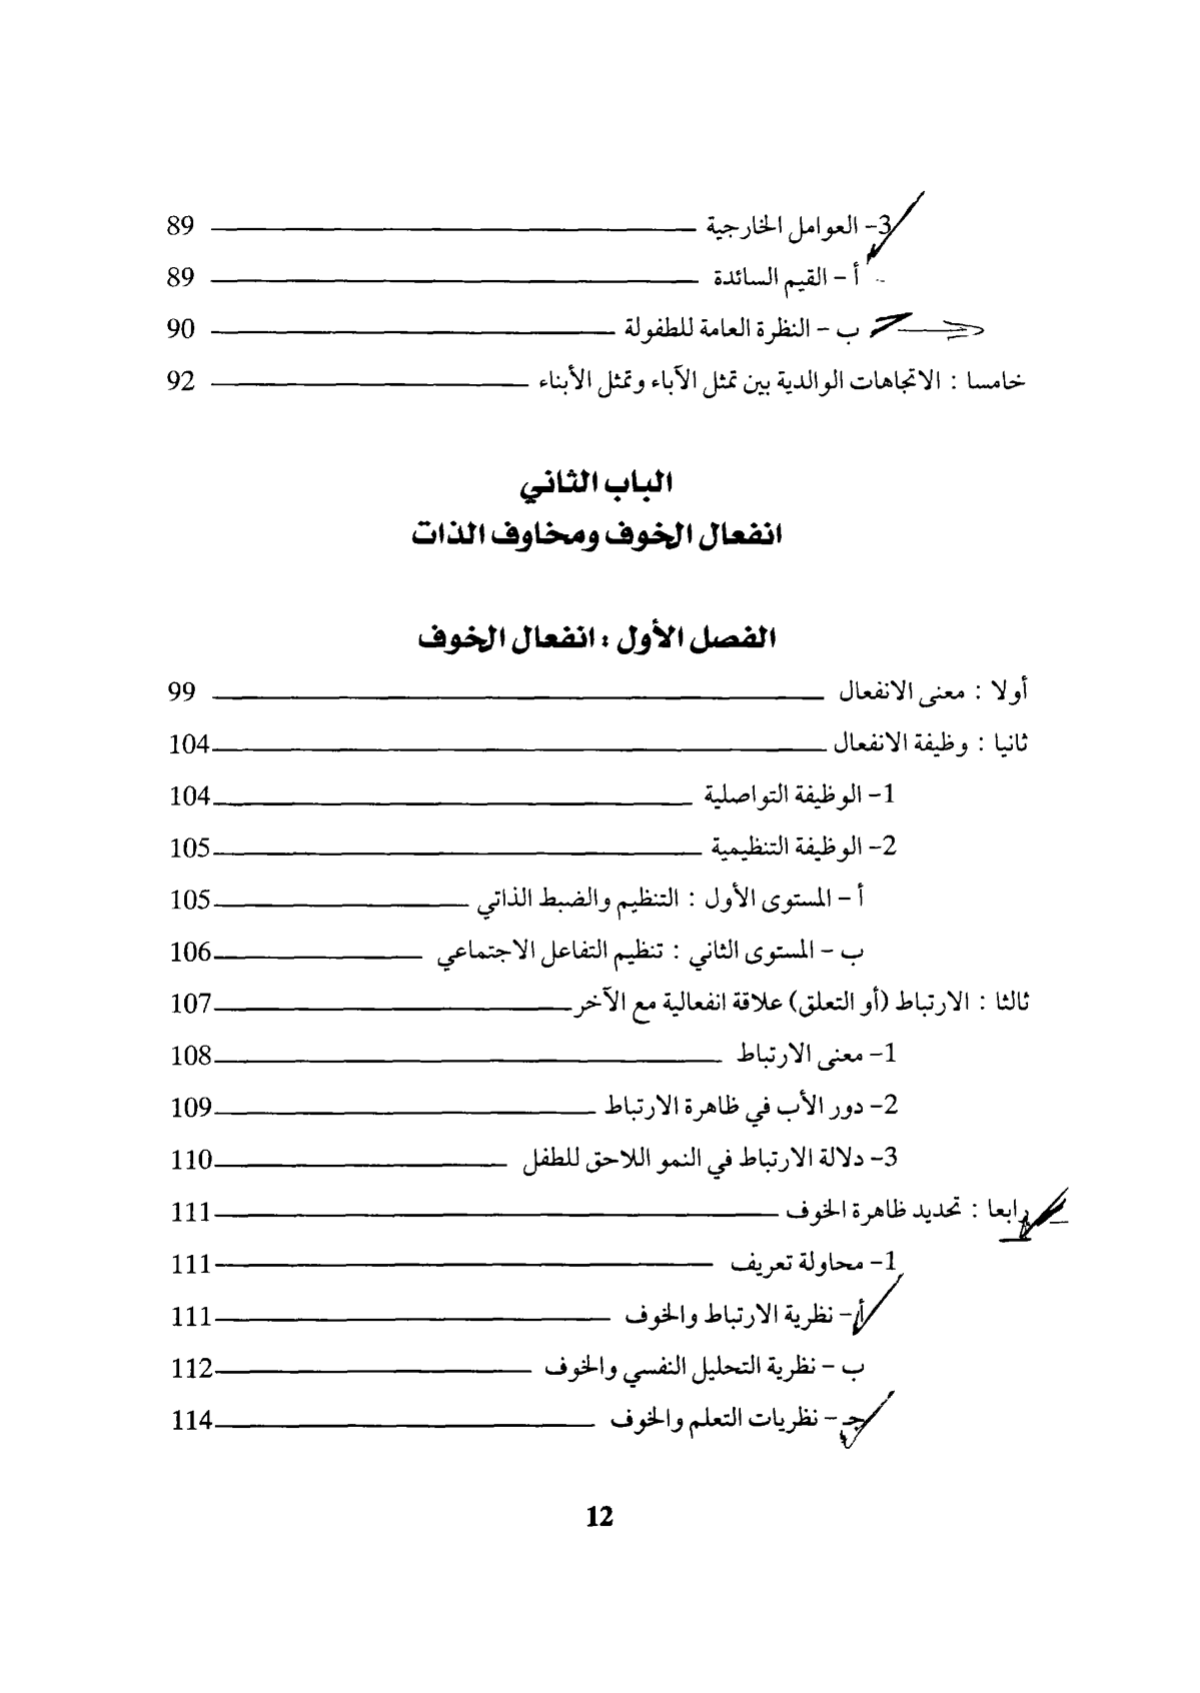 3- العوامل الخارجية 89
أ - القيم السائدة 89
ب - النظرة العامة للطفولة 90
خامسا : الاتجاهات الوالدية بين تمثل الآباء وتمثل الأبناء 92
الباب الثاني
انفعال الخوف ومخاوف الذات
الفصل الأول : انفعال الخوف
أولا : معنى الانفعال 99
ثانيا : وظيفة الانفعال 104
1- الوظيفة التواصلية 104
2- الوظيفة التنظيمية 105
أ - المستوى الأول : التنظيم والضبط الذاتي 105
ب - المستوى الثاني : تنظيم التفاعل الاجتماعي 106
ثالثا : الارتباط (أو التعلق) علاقة انفعالية مع الآخر 107
1- معنى الارتباط 108
2- دور الأب في ظاهرة الارتباط 109
3- دلالة الارتباط في النمو اللاحق للطفل 110
رابعا : تحديد ظاهرة الخوف 111
1- محاولة تعريف 111
أ- نظرية الارتباط والخوف 111
ب - نظرية التحليل النفسي والخوف 112
جـ - نظريات التعلم والخوف 114
12